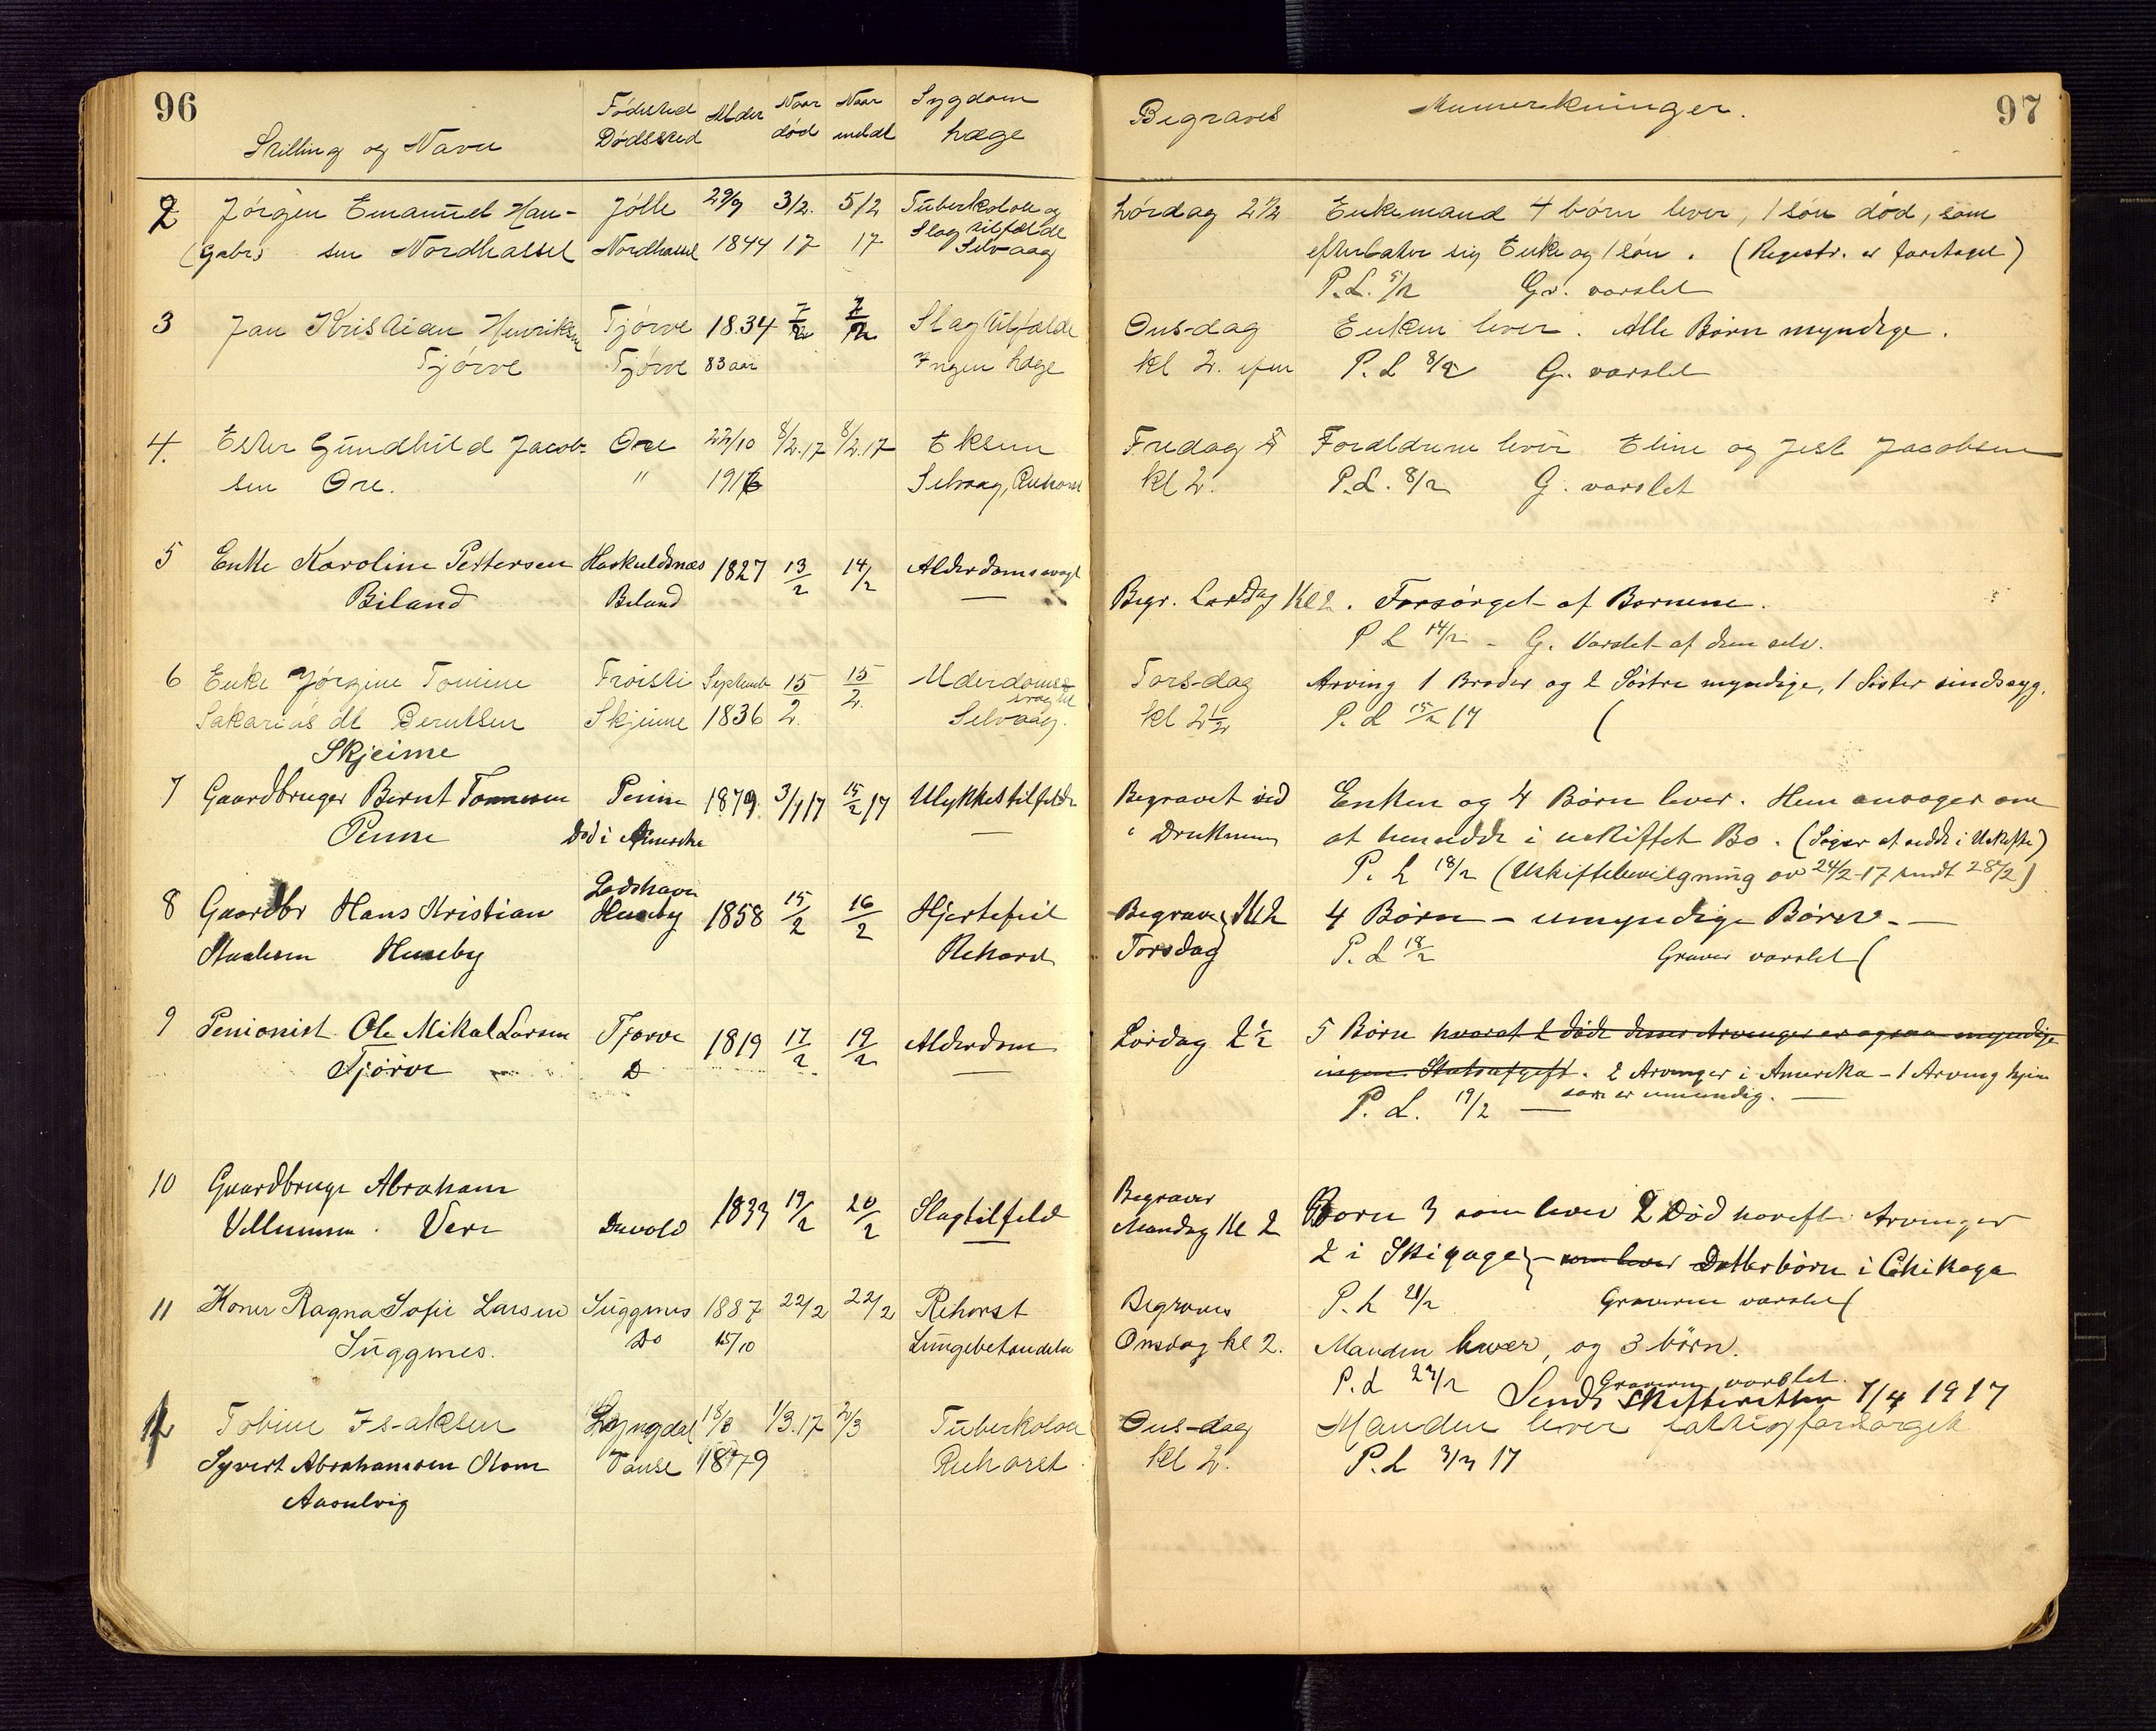 96
Stilling og Navn Fødested Dødssted Alder Naar død Naar meldt Sygdom Læge
Begraves Anmerkninger. 97
2 Jörgen Emanuel Han- Jölle 29/9 3/2. 5/2 Tuberkolose og
(Gabr) sen Nordhassel Nordhassel 1844 17 17 Slagtilfælde Selvaag
Lördag 2½ Enkemand 4 börn lever, 1 sön död, som
efterlater sig Enke og 1 sön. (Registr. er foretaget)
P.L. 5/2 Gr. varslet
3 Jan Kristian Henriksen Tjörve 1834 7/2 7/2 Slagtilfælde
Tjörve Tjörve 83 aar Ingen Læge
Ons-dag Enken lever. Alle Børn myndige.
kl 2. efm P.L 8/2 G. varslet
4. Ester Gundhild Jacob- Ore 22/10 8/2.17 8/2.17 Eksem
sen Ore. " 1916 Selvaag,
Fredag Foraldrene lever Eline og Jest Jacobsen
kl 2. P.L. 8/2 G. varslet
5 Enke Karoline Pettersen Haskuldsnæs 1827 13/2 14/2 Alderdomssvagh
Biland Biland
Begr. Lørdag Kl 2. Forsörget af Børnene.
P L 14/2 - G. Varslet af dem selv.
6 Enke Jörgine Tomine Fröisti Septemb 15/2 15/2 Alderdoms
Sakariasdt Berntsen Skjeime 1836 Selvaag.
Skjeime
Tors-dag Arving 1 Broder og 2 Söstre myndige, 1 Söster sindssyg.
kl 2½ P. L 15/2 17 (
7 Gaardbruger Bernt Tønnesen Penne 1879 3/1 17 15/2 17 Ulykkestilfelde
Penne Død i Amerika
Begravet ved Enken og 4 Børn lever. Hun ansøger om
" Druknen at hensidde i uskiftet Bo. (Søger at sidde i Uskifte)
P. L 18/2 (Uskiftebevilgning av 24/2-17 sendt 28/2)
8 Gaardbr Hans Kristian Ladshavn Huseby 1858 15/2 16/2 Hjertefeil
Staalesen Huseby Rehorst
Begraves Kl 2 4 Børn - umyndige Børn. -
Torsdag P. L 18/2 Graver varslet (
9 Penionist Ole Mikal Larsen Tjørve 1819 17/2 19/2 Alderdom
Tjörve Do
Lördag 2½ 5 Børn hvoraf 2 døde deres Arvinger er ogsaa myndige
ingen Statsafgift. 2 Arvinger i Amerika - 1 Arving hjem
som er umundig.
P. L. 19/2
10 Gaardbruge Abraham
Villumsen. Vere Duvold 1833 19/2 20/2 Slagtilfeld
Begraver Børn 3 som lever 2 Død horefter Arvinger
Mandag Kl 2 2 i Skigage - som lever Datterbörn i Chikago
P. L 20/2 Graveren varslet (
11 Koner Ragna Sofie Larsen Lüggmes 1887 22/2 22/2 Rehorst
Lüggmes. Do 15/10 Lungebetendelse
Begraves
Onsdag kl 2. Manden lever, og 3 börn.
P.L 23/2 Graveren varslet.
Sendt Skifteretten 7/4 1917
12 Tobine Is-aksen Lyngdal 18/8 1/3.17 2/3 Tuberkolose
Syvert Abrahamsen Kone Vanse 1879 Rehorst
Aasulvig
Ons-dag Manden lever fattigforsörget
kl 2. P.L 3/3 17